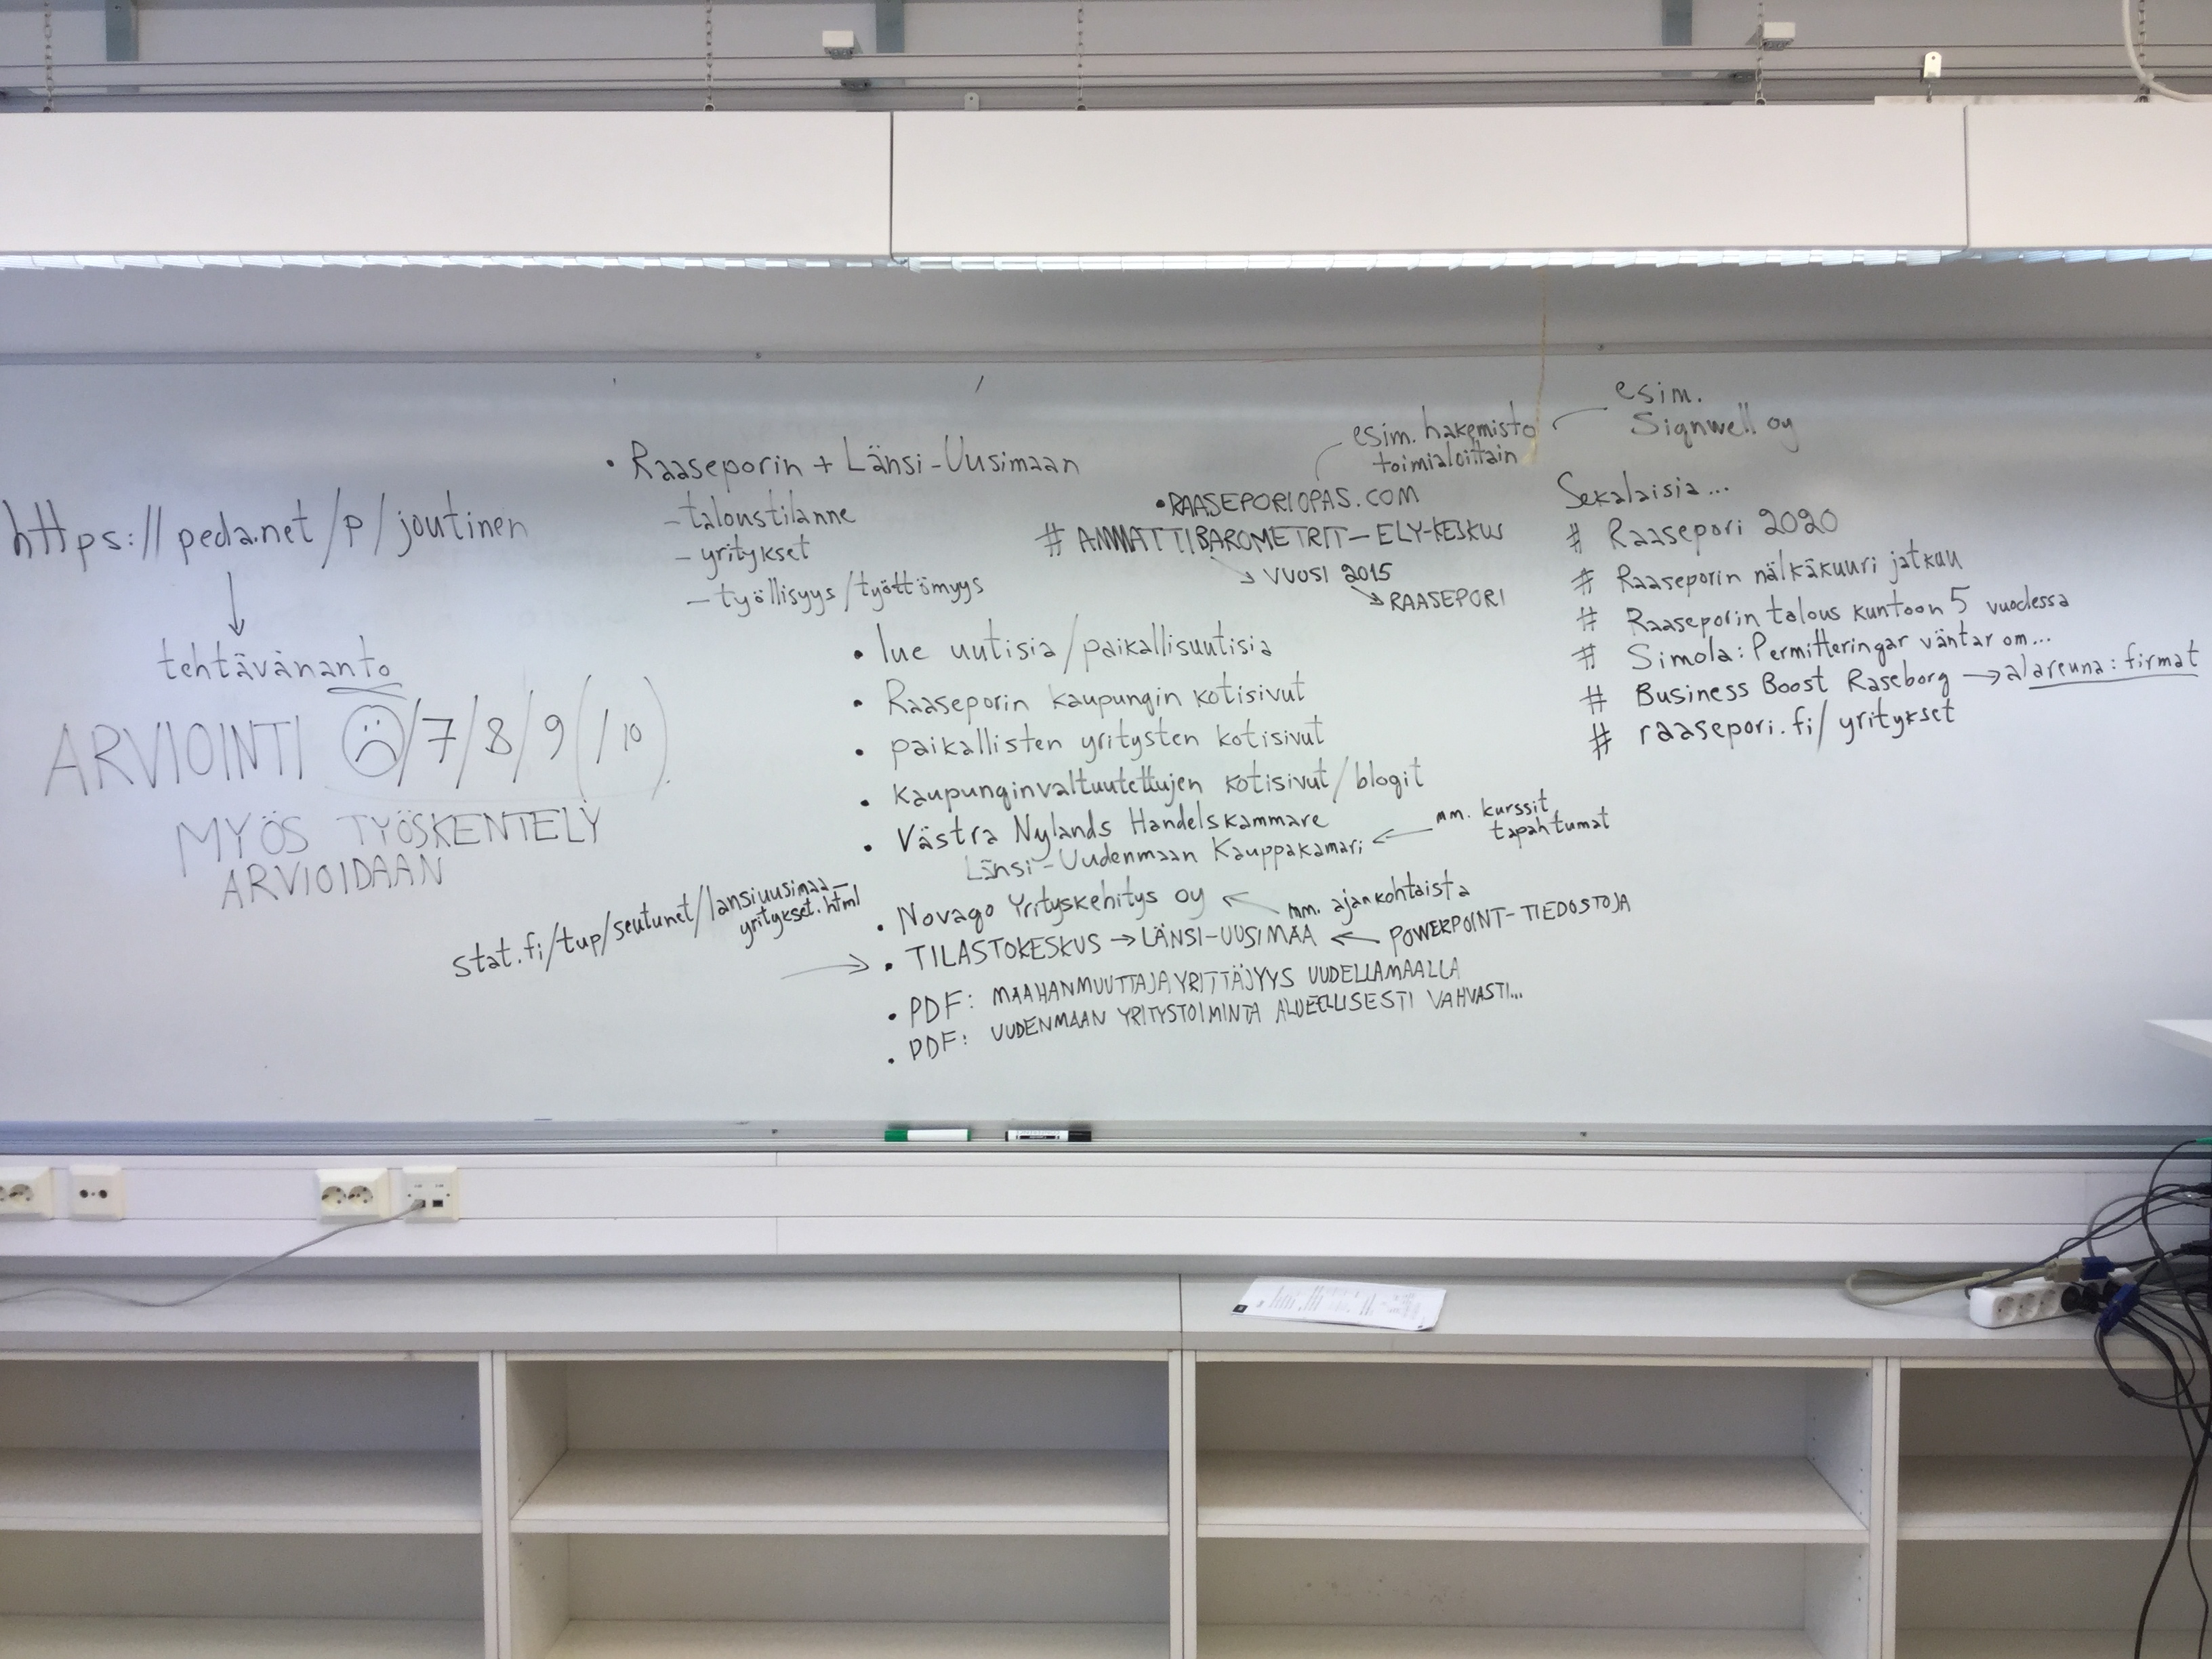 https://peda.net/p/joutinen
tehtävänanto
ARVIOINTI /7/8/9(/10)
MYÖS TYÖSKENTELY
ARVIOIDAAN
• Raaseporin + Länsi-Uusimaan
- taloustilanne
- yritykset
- työllisyys/työttömyys
esim.
Signwell oy
esim. hakemisto
toimialoittain
• RAASEPORIOPAS.COM
# AMMATTIBAROMETRIT - ELY-KESKUS
VUOSI 2015
RAASEPORI
• lue uutisia/paikallisuutisia
• Raaseporin kaupungin kotisivut
• paikallisten yritysten kotisivut
• kaupunginvaltuutettujen kotisivut/blogit
• Västra Nylands Handelskammare
Länsi-Uudenmaan Kauppakamari ← mm. kurssit
tapahtumat
• Novago Yrityskehitys oy ← mm. ajankohtaista
stat.fi/tup/seutunet/lansiuusimaa_
yritykset.html
→ • TILASTOKESKUS → LÄNSI-UUSIMAA ← POWERPOINT-TIEDOSTOJA
• PDF: MAAHANMUUTTAJAYRITTÄJYYS UUDELLAMAALLA
• PDF: UUDENMAAN YRITYSTOIMINTA ALUEELLISESTI VAHVASTI...
Sekalaisia...
# Raasepori 2020
# Raaseporin nälkäkuuri jatkuu
# Raaseporin talous kuntoon 5 vuodessa
# Simola: Permitteringar väntar om...
# Business Boost Raseborg → alareuna: firmat
# raasepori.fi/yritykset